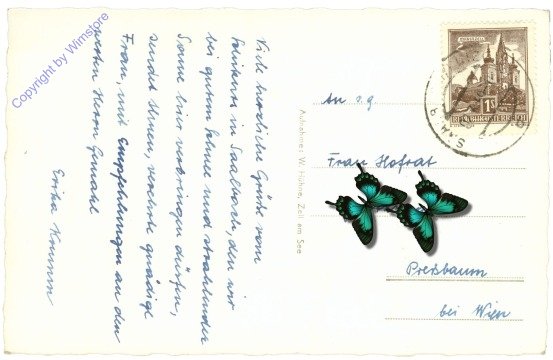 Copyright by Wimstore
Viele herzliche Grüße vom
in Saalbach, den wir
bei gutem Schnee und strahlender
Sonne hier verbringen dürfen,
sendet Ihnen, verehrte gnädige
Frau, mit Empfehlungen an den
werten Herrn Gemahl
Erika
Aufnahme: W. Hühne, Zell am See
An s.g.
Frau Hofrat
Preßbaum
bei Wien
1S
REPUBLIK ÖSTERREICH